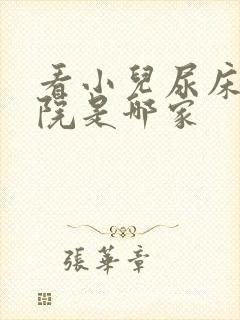 看小兒尿床
院是哪家
張華章